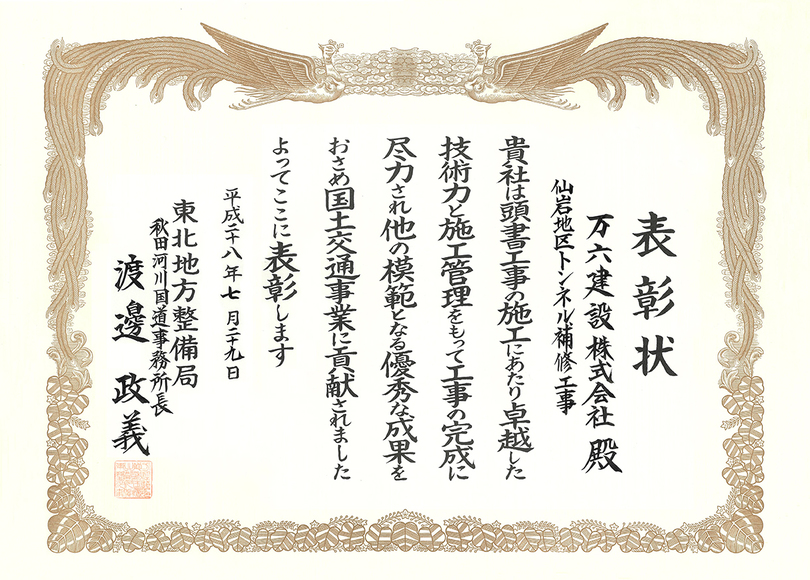 表彰状
万六建設株式会社 殿
仙岩地区トンネル補修工事
貴社は頭書工事の施工にあたり卓越した
技術力と施工管理をもって工事の完成に
尽力され他の模範となる優秀な成果を
おさめ国土交通事業に貢献されました
よってここに表彰します
平成二十八年七月二十九日
東北地方整備局
秋田河川国道事務所長
渡邊政義